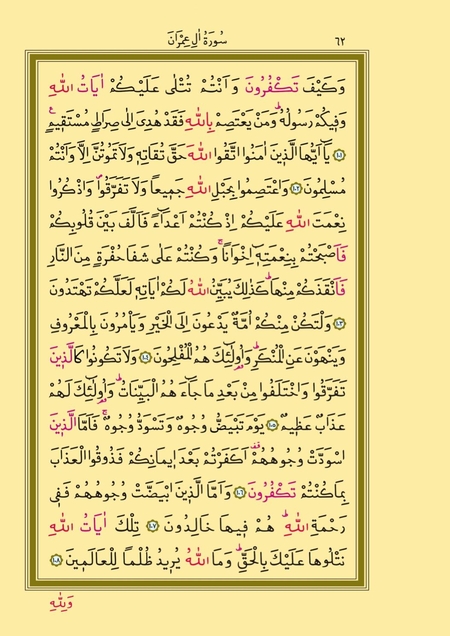 ٦٢ سُورَةُ اٰلِ عِمْرٰنَ
وَكَيْفَ تَكْفُرُونَ وَاَنْتُمْ تُتْلٰى عَلَيْكُمْ اٰيَاتُ اللّٰهِ
وَفٖيكُمْ رَسُولُهُؕ وَمَنْ يَعْتَصِمْ بِاللّٰهِ فَقَدْ هُدِىَ اِلٰى صِرَاطٍ مُسْتَقٖيمٍࣖ
﴿١٠١﴾ يَٓا اَيُّهَا الَّذٖينَ اٰمَنُوا اتَّقُوا اللّٰهَ حَقَّ تُقَاتِهٖ وَلَا تَمُوتُنَّ اِلَّا وَاَنْتُمْ
مُسْلِمُونَ ﴿١٠٢﴾ وَاعْتَصِمُوا بِحَبْلِ اللّٰهِ جَمٖيعاً وَلَا تَفَرَّقُواࣕ وَاذْكُرُوا
نِعْمَتَ اللّٰهِ عَلَيْكُمْ اِذْ كُنْتُمْ اَعْدَٓاءً فَاَلَّفَ بَيْنَ قُلُوبِكُمْ
فَاَصْبَحْتُمْ بِنِعْمَتِهٖٓ اِخْوَاناًۚ وَكُنْتُمْ عَلٰى شَفَا حُفْرَةٍ مِنَ النَّارِ
فَاَنْقَذَكُمْ مِنْهَاؕ كَذٰلِكَ يُبَيِّنُ اللّٰهُ لَكُمْ اٰيَاتِهٖ لَعَلَّكُمْ تَهْتَدُونَ
﴿١٠٣﴾ وَلْتَكُنْ مِنْكُمْ اُمَّةٌ يَدْعُونَ اِلَى الْخَيْرِ وَيَأْمُرُونَ بِالْمَعْرُوفِ
وَيَنْهَوْنَ عَنِ الْمُنْكَرِؕ وَاُولٰٓئِكَ هُمُ الْمُفْلِحُونَ ﴿١٠٤﴾ وَلَا تَكُونُوا كَالَّذٖينَ
تَفَرَّقُوا وَاخْتَلَفُوا مِنْ بَعْدِ مَا جَٓاءَهُمُ الْبَيِّنَاتُؕ وَاُولٰٓئِكَ لَهُمْ
عَذَابٌ عَظٖيمٌۙ ﴿١٠٥﴾ يَوْمَ تَبْيَضُّ وُجُوهٌ وَتَسْوَدُّ وُجُوهٌۚ فَاَمَّا الَّذٖينَ
اسْوَدَّتْ وُجُوهُهُمْࣞ اَكَفَرْتُمْ بَعْدَ اٖيمَانِكُمْ فَذُوقُوا الْعَذَابَ
بِمَا كُنْتُمْ تَكْفُرُونَ ﴿١٠٦﴾ وَاَمَّا الَّذٖينَ ابْيَضَّتْ وُجُوهُهُمْ فَفٖى
رَحْمَةِ اللّٰهِؕ هُمْ فٖيهَا خَالِدُونَ ﴿١٠٧﴾ تِلْكَ اٰيَاتُ اللّٰهِ
نَتْلُوهَا عَلَيْكَ بِالْحَقِّؕ وَمَا اللّٰهُ يُرٖيدُ ظُلْماً لِلْعَالَمٖينَ ﴿١٠٨﴾
وَلِلّٰهِ